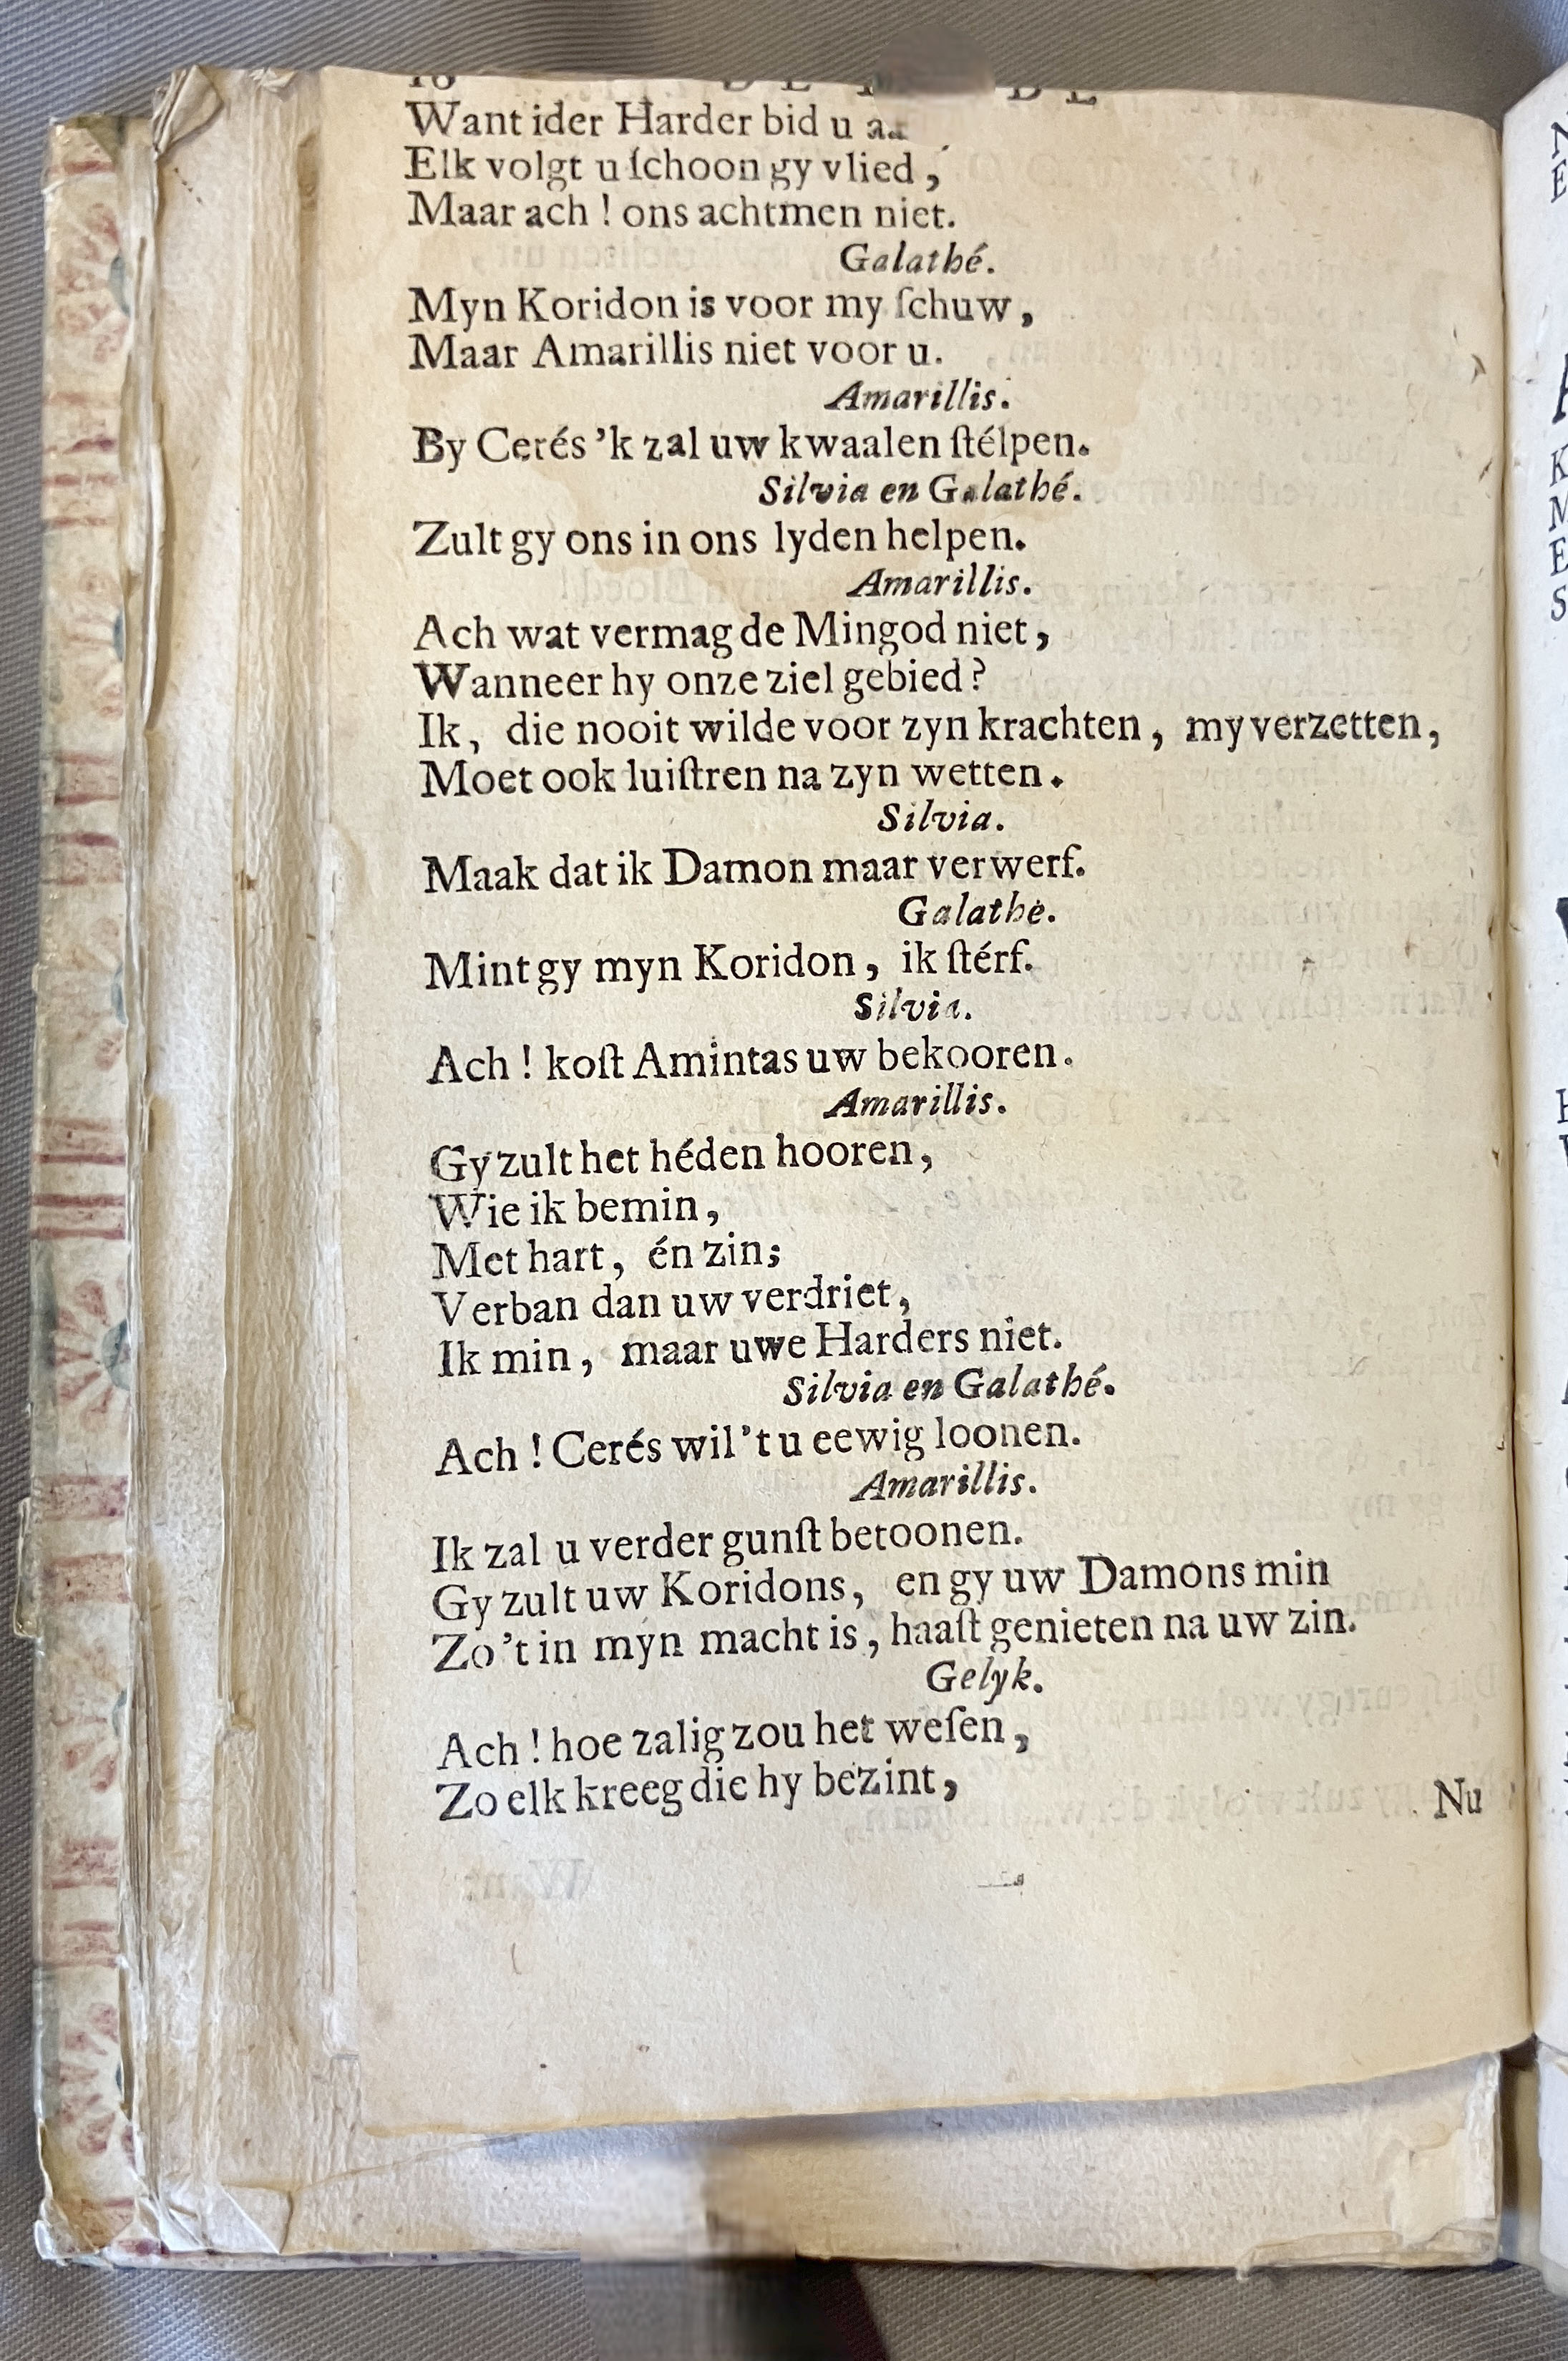 Want ider Harder bid u
Elk volgt u ſchoon gy vlied,
Maar ach! ons achtmen niet.
Galathé.
Myn Koridon is voor my ſchuw,
Maar Amarillis niet voor u.
Amarillis.
By Cerés 'k zal uw kwaalen ſtélpen.
Silvia en Galathé.
Zult gy ons in ons lyden helpen.
Amarillis.
Ach wat vermag de Mingod niet,
Wanneer hy onze ziel gebied?
Ik, die nooit wilde voor zyn krachten, my verzetten,
Moet ook luiſtren na zyn wetten.
Silvia.
Maak dat ik Damon maar verwerf.
Galathè.
Mint gy myn Koridon, ik ſtérf.
Silvia.
Ach! koſt Amintas uw bekooren.
Amarillis.
Gy zult het héden hooren,
Wie ik bemin,
Met hart, én zin;
Verban dan uw verdriet,
Ik min, maar uwe Harders niet.
Silvia en Galathé.
Ach! Cerés wil 't u eewig loonen.
Amarillis.
Ik zal u verder gunſt betoonen.
Gy zult uw Koridons, en gy uw Damons min
Zo 't in myn macht is, haaſt genieten na uw zin.
Gelyk.
Ach! hoe zalig zou het weſen,
Zo elk kreeg die hy bezint,
Nu